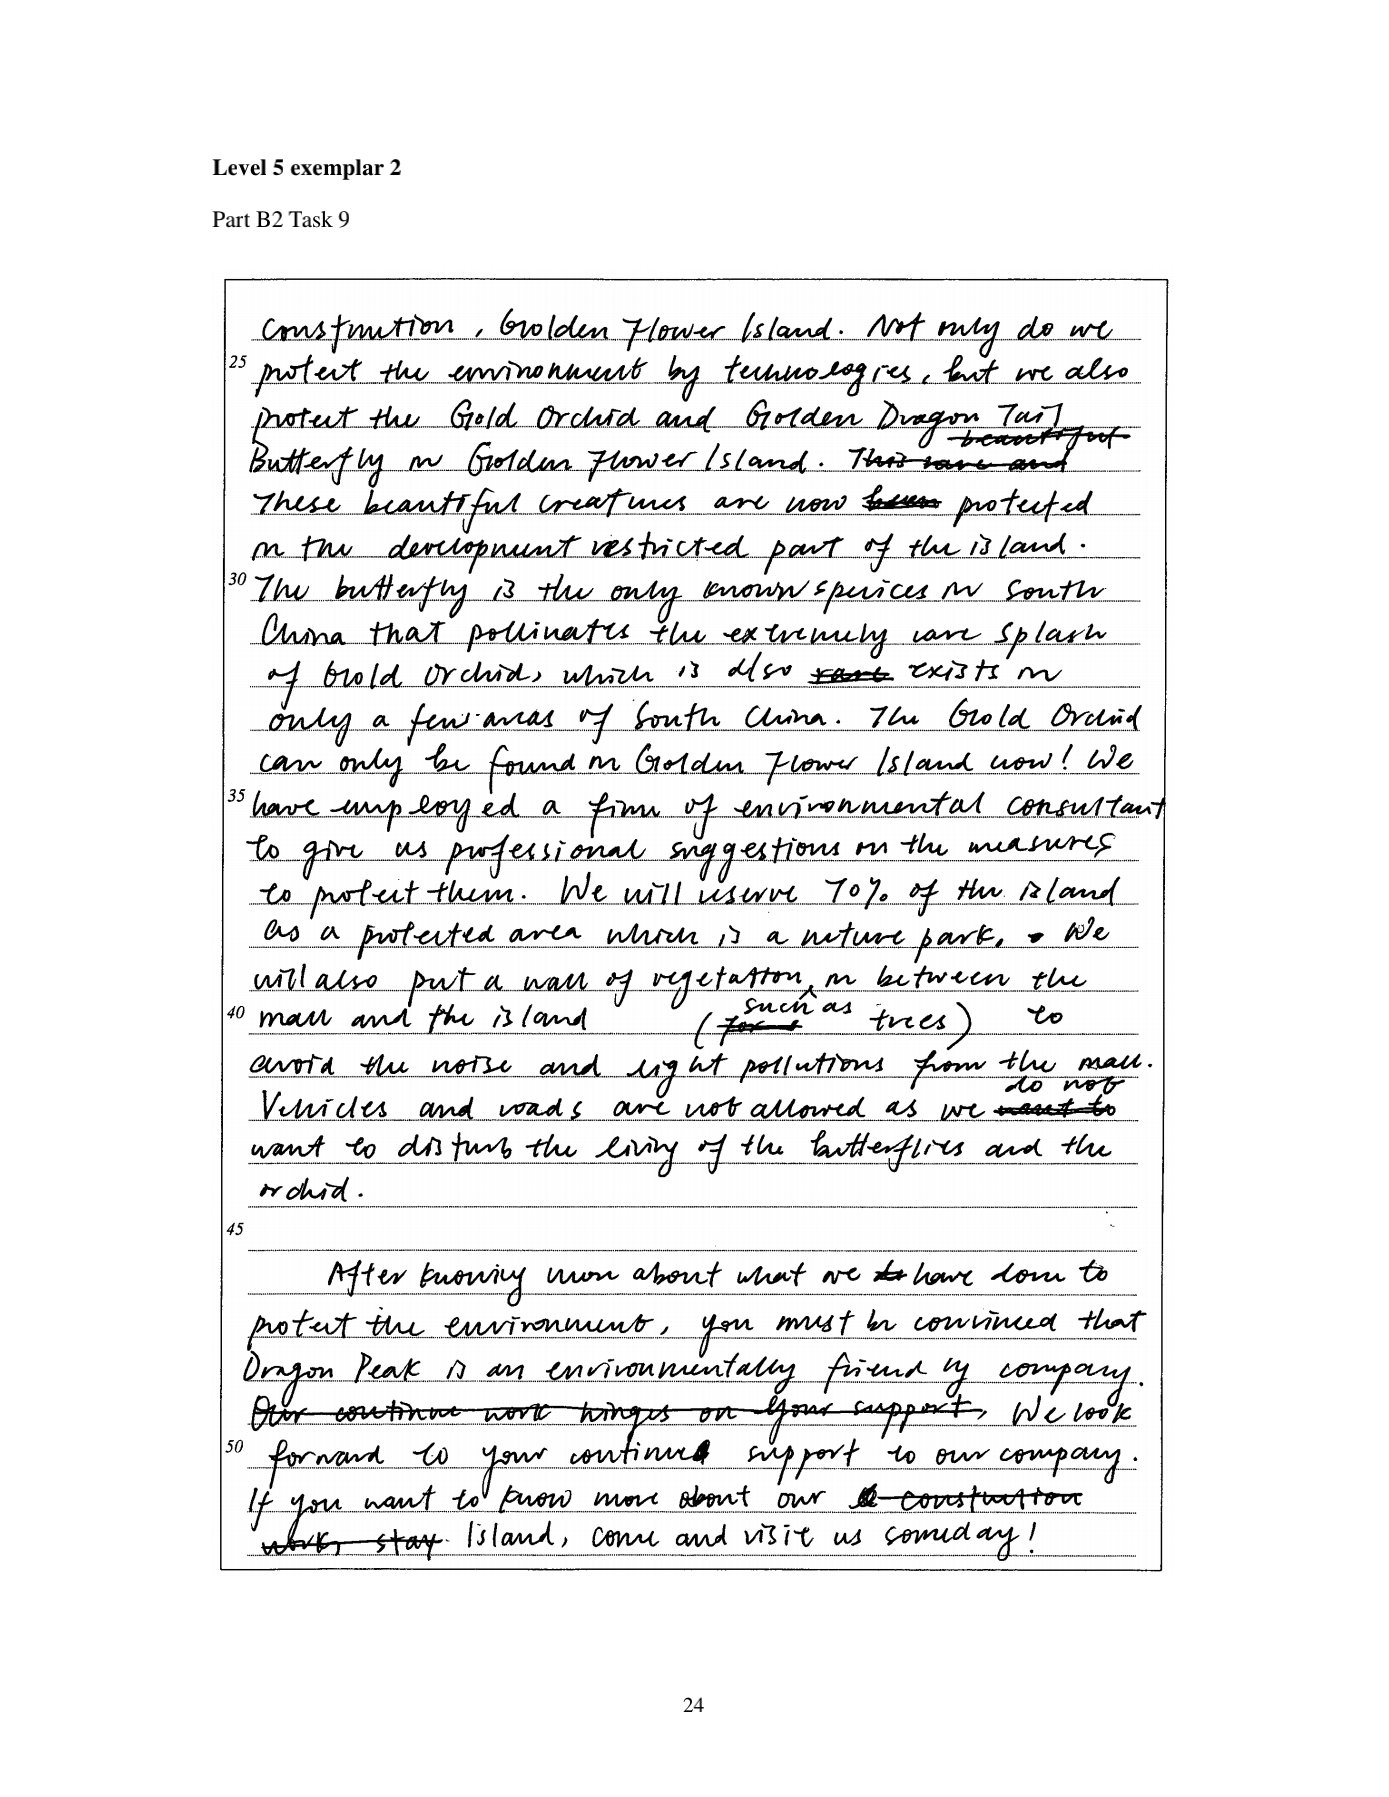 Level 5 exemplar 2
Part B2 Task 9
construction, Golden Flower Island. Not only do we
25 protect the environment by technologies, but we also
protect the Gold Orchid and Golden Dragon Tail
beautiful
Butterfly in Golden Flower Island. This rare and
These beautiful creatures are now been protected
in the development restricted part of the island.
30 The butterfly is the only known speices in South
China that pollinates the extremely rare Splash
of Gold Orchid, which is also rare exists in
only a few areas of South China. The Gold Orchid
can only be found in Golden Flower Island now! We
35 have employed a firm of environmental consultant
to give us professional suggestions on the measures
to protect them. We will reserve 70% of the island
as a protected area which is a nature park. We
will also put a wall of vegetation in between the
40 mall and the island (such as trees) to
avoid the noise and light pollutions from the mall.
do not
Vehicles and roads are not allowed as we want to
want to disturb the living of the butterflies and the
orchid.
45
After knowing more about what we have done to
protect the environment, you must be convinced that
Dragon Peak is an environmentally friendly company.
Our continue work hinges on your support, We look
50 forward to your continued support to our company.
If you want to know more about our construction
work, stay Island, come and visit us someday!
24